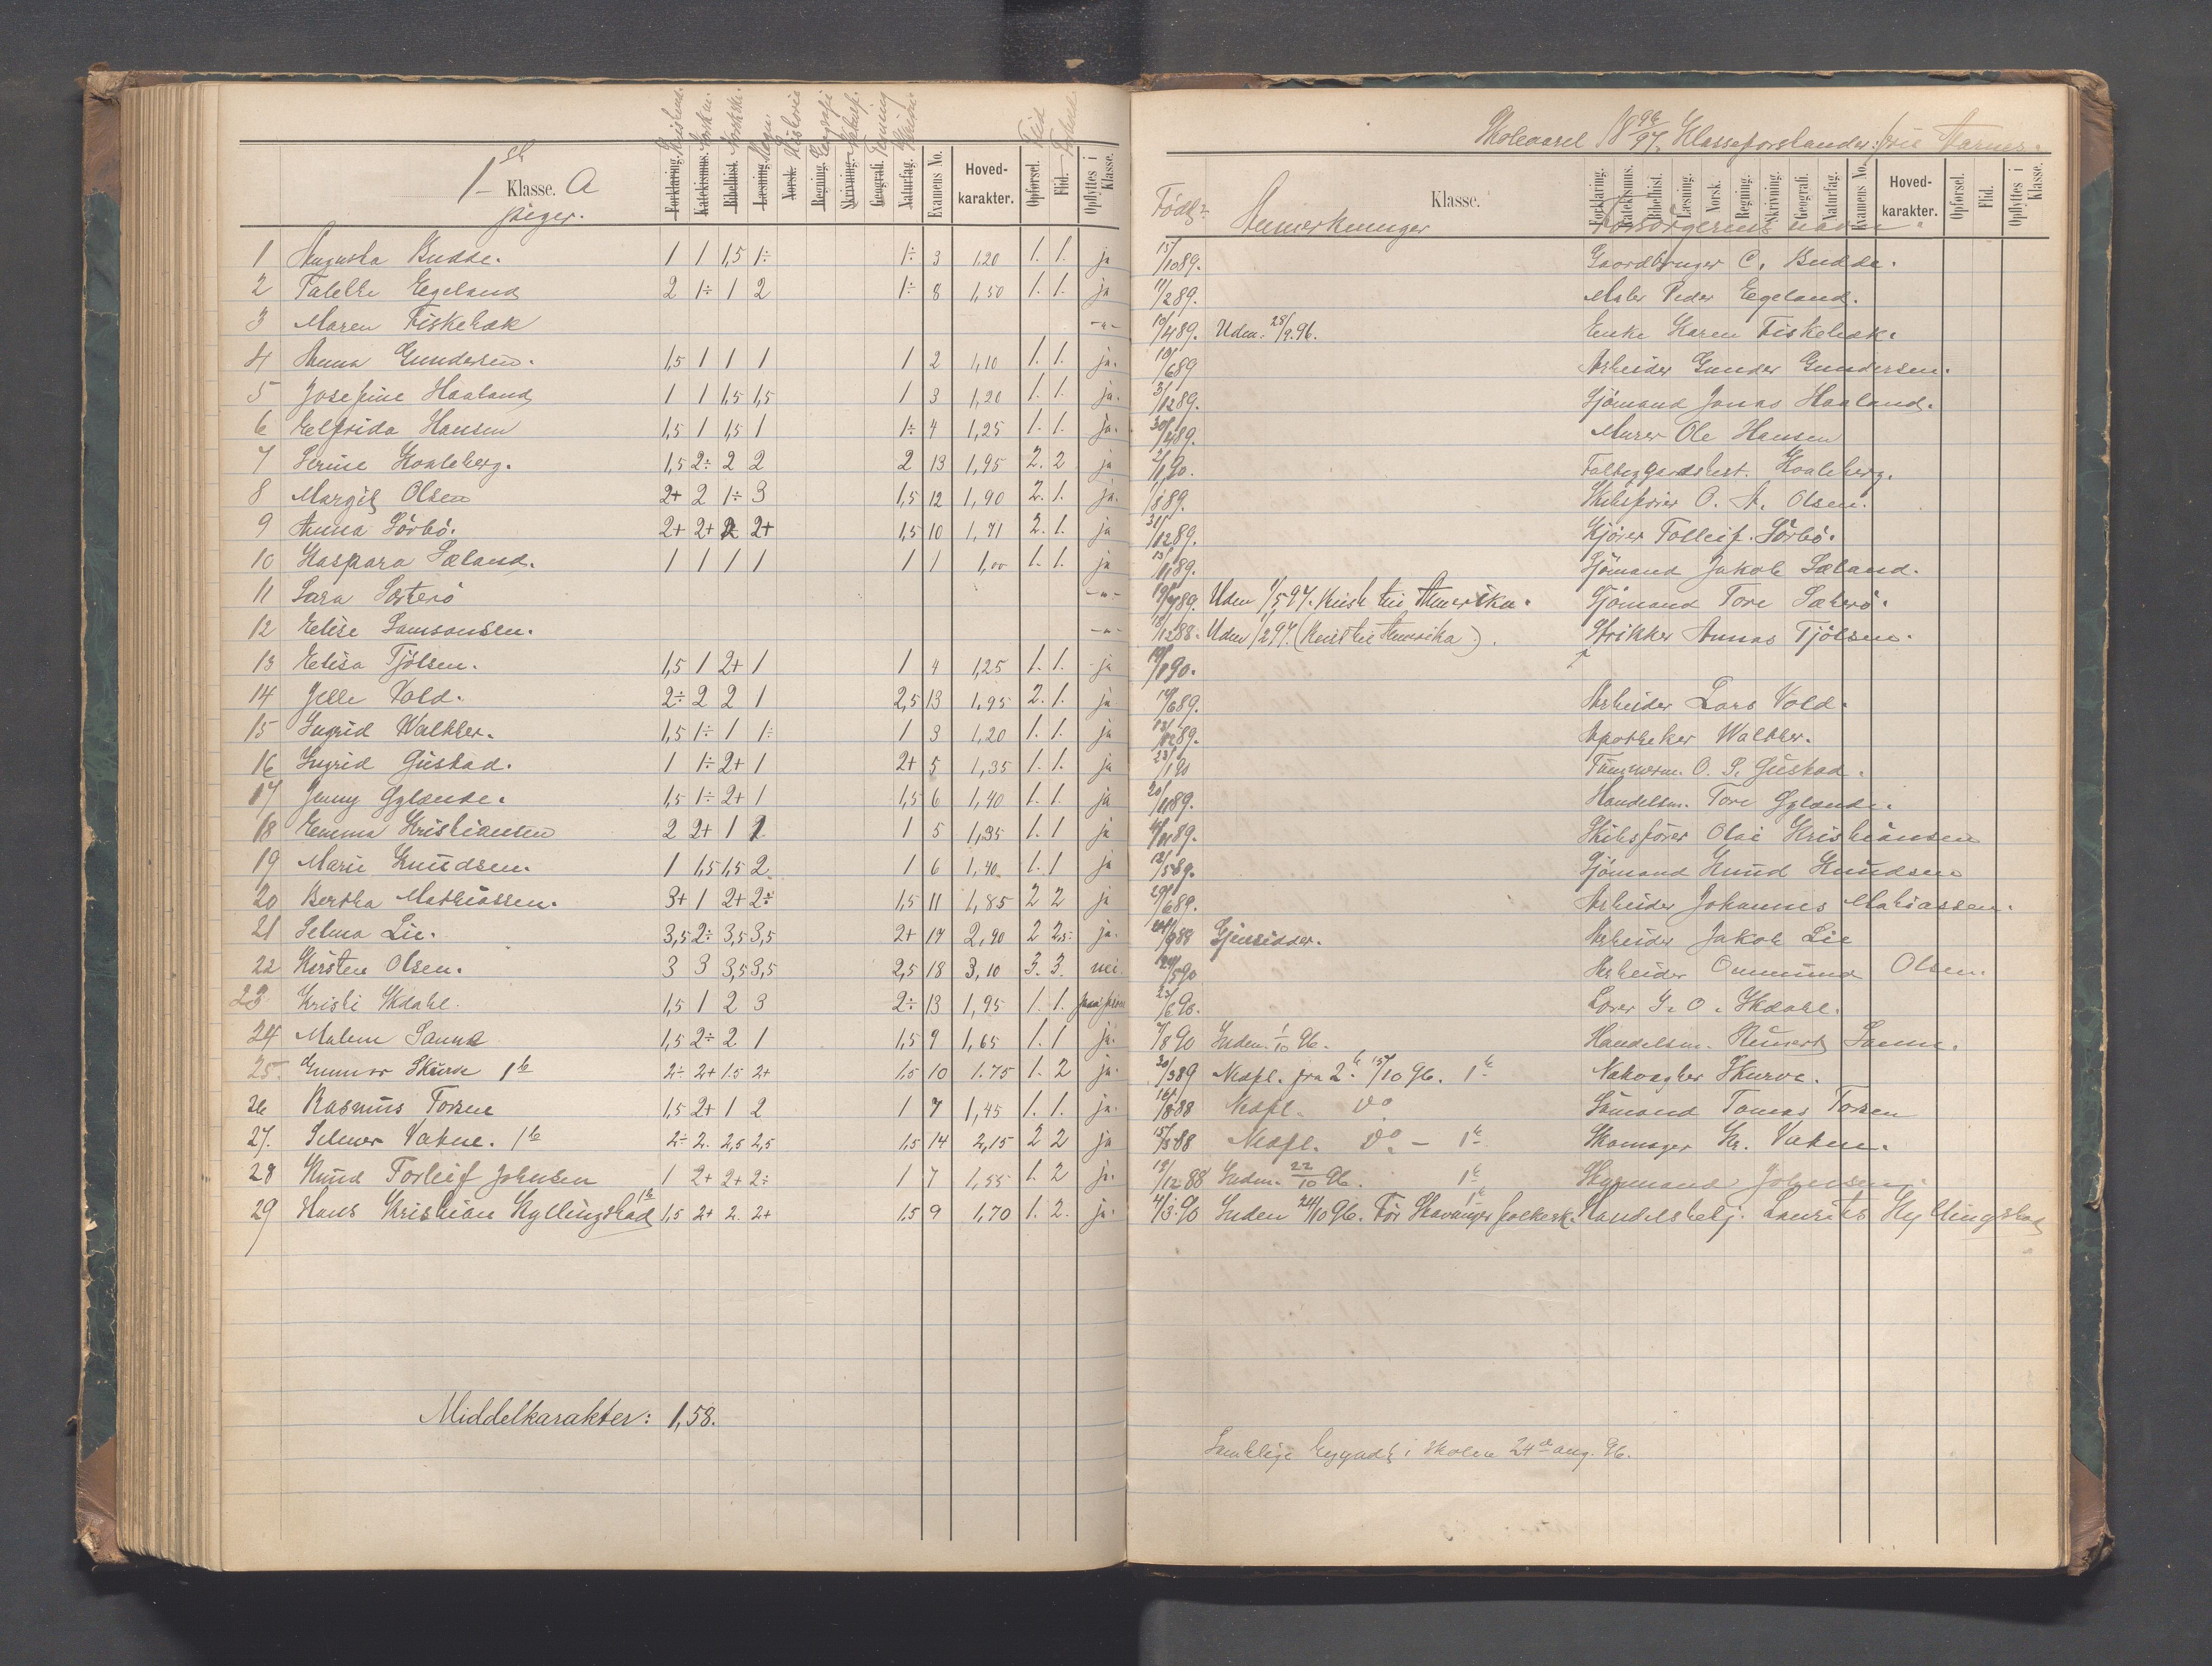 1ste Klasse. A
piger.
Forklaring. Katekismus. Bibelhist. Læsning. Norsk. Regning. Skrivning. Geografi. Naturfag. Examens No. Hoved-karakter. Opførsel. Flid. Opflyttes i Klasse.
1 Augusta Budde. 1 1 1,5 1÷ 1÷ 3 1,20 1. 1. ja
2 Talette Egeland 2 1÷ 1 2 1÷ 8 1,50 1. 1. ja
3 Maren Fiskebæk -"-
4 Anna Gundersen. 1,5 1 1 1 1 2 1,10 1. 1. ja.
5 Josefine Haaland 1 1 1,5 1,5 1 3 1,20 1. 1. ja.
6 Elfrida Hansen 1,5 1 1,5 1 1÷ 4 1,25 1. 1. ja.
7 Serine Hoaleberg. 1,5 2÷ 2 2 2 13 1,95 2. 2 ja
8 Margit Olsen 2+ 2 1÷ 3 1,5 12 1,90 2. 1. ja.
9 Anna Sørbø. 2+ 2+ 2 2+ 1,5 10 1,71 2. 1. ja
10 Kaspara Sæland. 1 1 1 1 1 1 1,00 1. 1. ja
11 Sara Sæterø -"-
12 Elise Samsonsen. -"-
13 Elisa Tjølsen. 1,5 1 2+ 1 1 4 1,25 1. 1. ja
14 Jelle Vold. 2÷ 2 2 1 2,5 13 1,95 2. 1. ja
15 Ingrid Walther. 1,5 1÷ 1 1÷ 1 3 1,20 1. 1. ja
16 Ingrid Gustad. 1 1÷ 2+ 1 2+ 5 1,35 1. 1. ja
17 Jenny Gylande. 1,5 1÷ 2+ 1 1,5 6 1,40 1. 1. ja
18 Emma Kristiansen 2 2+ 1 1 5 1,35 1. 1 ja
19 Marie Knudsen. 1 1,5 1,5 2 1 6 1,40 1. 1 ja
20 Bertha Mathiassen. 3+ 1 2+ 2÷ 1,5 11 1,85 2 2 ja
21 Selma Lie. 3,5 2÷ 3,5 3,5 2+ 17 2,90 2 2,5 ja.
22 Kirsten Olsen. 3 3 3,5 3,5 2,5 18 3,10 3. 3. nei.
23 Kristi Skdahl. 1,5 1 2 3 2÷ 13 1,95 1. 1.
24 Malene Sanne 1,5 2÷ 2 1 1,5 9 1,65 1. 1 ja.
25. Gunnar Skurve 1b 2÷ 2+ 1.5 2+ 1.5 10 1.75 1. 2 ja.
26 Rasmus Torsen 1,5 2+ 1 2 1 7 1,45 1. 1. ja.
27. Selmer Vatne. 1b 2÷ 2. 2,5 2,5 1,5 14 2,15 2 2 ja
28 Knud Torleif Johnsen 1 2+ 2+ 2÷ 1 7 1,55 1. 2 ja.
29 Hans Kristian Kyllingstad 1b 1,5 2+ 2. 2+ 1,5 9 1,70 1. 2. ja.
Middelkarakter: 1,58.
Skoleaaret 1896/97. Klasseforstander:
Født Anmerkninger Klasse. Forsørgerens navn.
Forklaring. Katekismus. Bibelhist. Læsning. Norsk. Regning. Skrivning. Geografi. Naturfag. Examens No. Hoved-karakter. Opførsel. Flid. Opflyttes i Klasse.
15/10 89. Gaardbruger C. Budde.
11/2 89. Maler Peder Egeland.
10/4 89. Udm. 25/9.96. Enke Karen Fiskebæk.
10/6 89 Arbeider Gunder Gundersen.
3/12 89. Sjømand Jonas Haaland.
Murer Ole Hansen
2/1 90. Hoaleberg.
Skibsfører O. A. Olsen.
31/12 89. Kjører Tolleif Sørbø.
13/11 89. Sjømand Jakob Sæland.
Udm 1/5 97. Reist til Amerika. Sjømand Tore Sæterø.
Udm 1/2 97. (Reist til Amerika). Strikker Annas Tjølsen.
19/8 90.
14/6 89. Arbeider Lars Vold.
Apotheker Walther.
23/1 90 Tømmerm. O. S. Gustad.
20/11 89. Handelsm. Tore Gylande.
Skibsfører Olai Kristiansen
12/5 89. Sjømand Knud Knudsen
29/6 89. Arbeider Johannes Matiassen.
9 88 Gjensidder. Arbeider Jakob Lie
5 90 Arbeider Ommund Olsen.
23/6 90. Lærer S. O. Skdahl.
7/8 90 Indm. 1/10 96. Handelsm. Reinert Sanne.
30/3 89 Nedfl. fra 2b 15/10 96. 1b Natvægter Skurve.
16/8 88 Nedfl. Do Sømand Tomas Torsen
Nedfl. Do - 1b Skomager Kr. Vatne.
19/12 88 Indm. 22/10 96. 1b Johnsen.
4/3 90 Inden 24/10 96. Før Stavanger folkesk. 1b Handelsbetj. Laurits Kyllingstad
Samtlige begyndt i skolen 24de aug. 96.